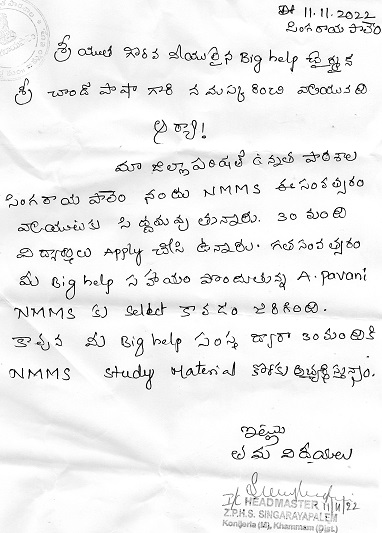 Dt 11.11.2022
సింగరాయ పాలెం
శ్రీయుత గౌరవనీయులైన Big help చైర్మన్
శ్రీ చాంద్ పాషా గారికి నమస్కరించి వ్రాయునది
ఆర్యా!
మా జిల్లా పరిషత్ ఉన్నత పాఠశాల
సింగరాయ పాలెం నందు NMMS ఈ సంవత్సరం
వ్రాయుటకు సిద్ధమవుతున్నారు. 30 మంది
విద్యార్థులు Apply చేసి ఉన్నారు. గత సంవత్సరం
మీ Big help సహాయం పొందుతున్న A. pavani
NMMS కు select కావడం జరిగింది.
కావున మీ Big help సంస్థ ద్వారా 30 మందికి
NMMS study Material కొరకు అభ్యర్థిస్తున్నాం.
ఇట్లు
తమ విధేయులు
11/11/22
HEADMASTER
Z.P.H.S. SINGARAYAPALEM
Konijerla (M), Khammam (Dist.)